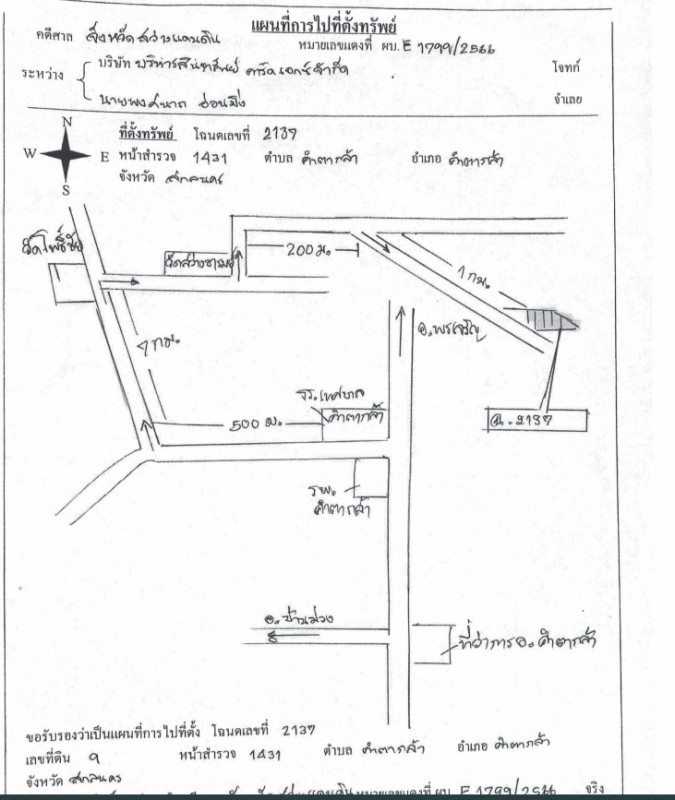 แผนที่การไปที่ตั้งทรัพย์
คดีศาล จังหวัดสว่างแดนดิน หมายเลขแดงที่ ผบ. E 1799/2566
ระหว่าง บริษัท บริหารสินทรัพย์ จำกัด โจทก์
จำเลย
N
W E
S
ที่ตั้งทรัพย์ โฉนดเลขที่ 2137
หน้าสำรวจ 1431 ตำบล คำตากล้า อำเภอ คำตากล้า
จังหวัด สกลนคร
วัดโพธิ์ชัย
วัดสว่างอารมย์
200 ม.
1 กม.
อ.พรเจริญ
7 กม.
รร.เทศบาล
คำตากล้า
500 ม.
ฉ. 2137
รพ.
คำตากล้า
อ.บ้านม่วง
ที่ว่าการอ.คำตากล้า
ขอรับรองว่าเป็นแผนที่การไปที่ตั้ง โฉนดเลขที่ 2137
เลขที่ดิน 9 หน้าสำรวจ 1431 ตำบล คำตากล้า อำเภอ คำตากล้า
จังหวัด สกลนคร
หมายเลขแดงที่ ผบ. E 1799/2566 จริง